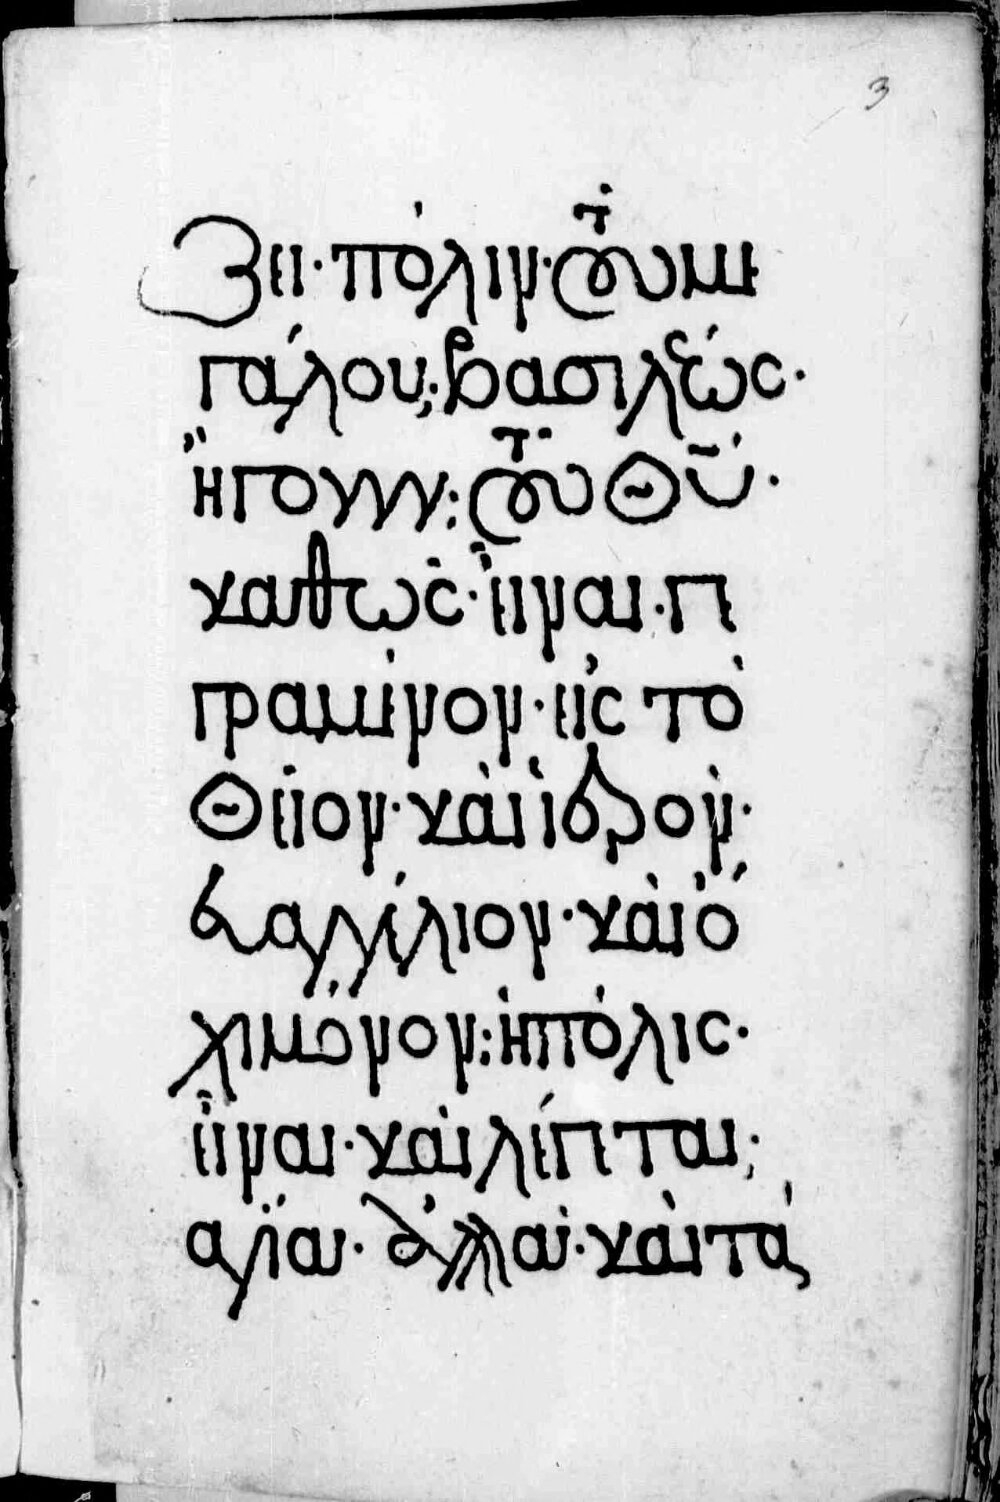 3
ξει· πόλιν· τοῦ με
γάλου; βασιλέως·
ἤγουν; τοῦ θῦ·
καθὼς· εἶναι· γε
γραμένον· εἰς τὸ
θεῖον· καὶ ἱερὸν·
εὐαγγέλιον· καὶ ὄ
χι μόνον; ἡ πόλις·
εἶναι· καὶ λέγεται;
αγίαι· ἀλλαὶ· καὶ τὰ